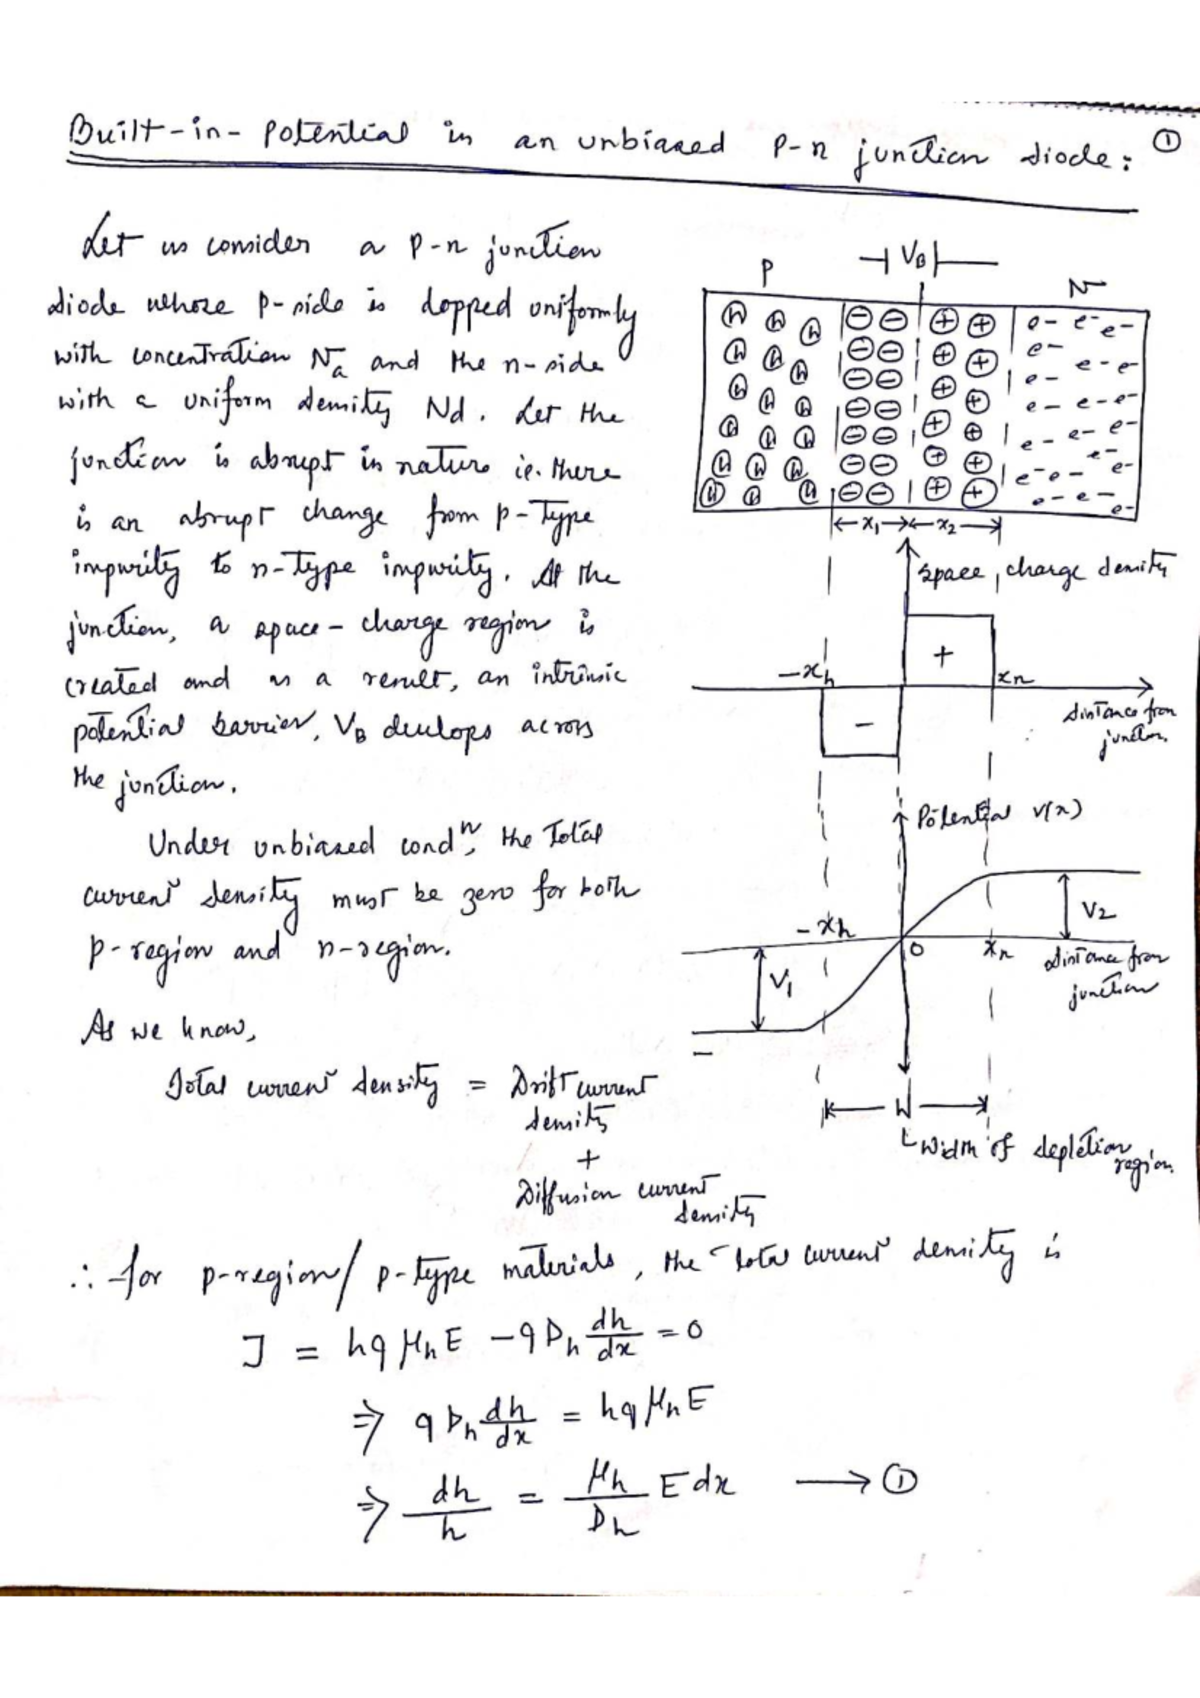 Built-in-potential in an unbiased p-n junction diode: ①
Let us consider a p-n junction
diode whose p-side is dopped uniformly
with concentration Na and the n-side
with a uniform density Nd. Let the
junction is abrupt in nature ie. there
is an abrupt change from p-type
impurity to n-type impurity. At the
junction, a space-charge region is
created and as a result, an intrinsic
potential barrier, VB develops across
the junction.
Under unbiased condn, the total
current density must be zero for both
p-region and n-region.
As we know,
Total current density = Drift current
density
+
Diffusion current
density
∴ for p-region/p-type materials, the total current density is
J = hqμhE - qDh dh/dx = 0
⇒ qDh dh/dx = hqμhE
⇒ dh/h = μh/Dh E dx → ①
VB
P
N
x1
x2
space, charge density
+
-xh
xn
-
distance from
junction.
Potential V(x)
V2
-xh
0
xn
distance from
junction
V1
W
Width of depletion
region.